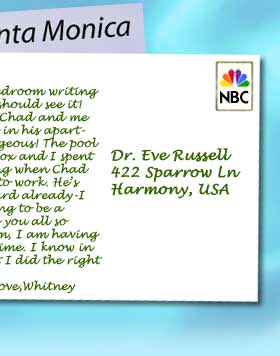 nta Monica
droom writing
should see it!
Chad and me
in his apart-
geous! The pool
ox and I spent
g when Chad
to work. He's
rd already-I
ng to be a
you all so
m, I am having
time. I know in
I did the right
ove,Whitney
NBC
Dr. Eve Russell
422 Sparrow Ln
Harmony, USA